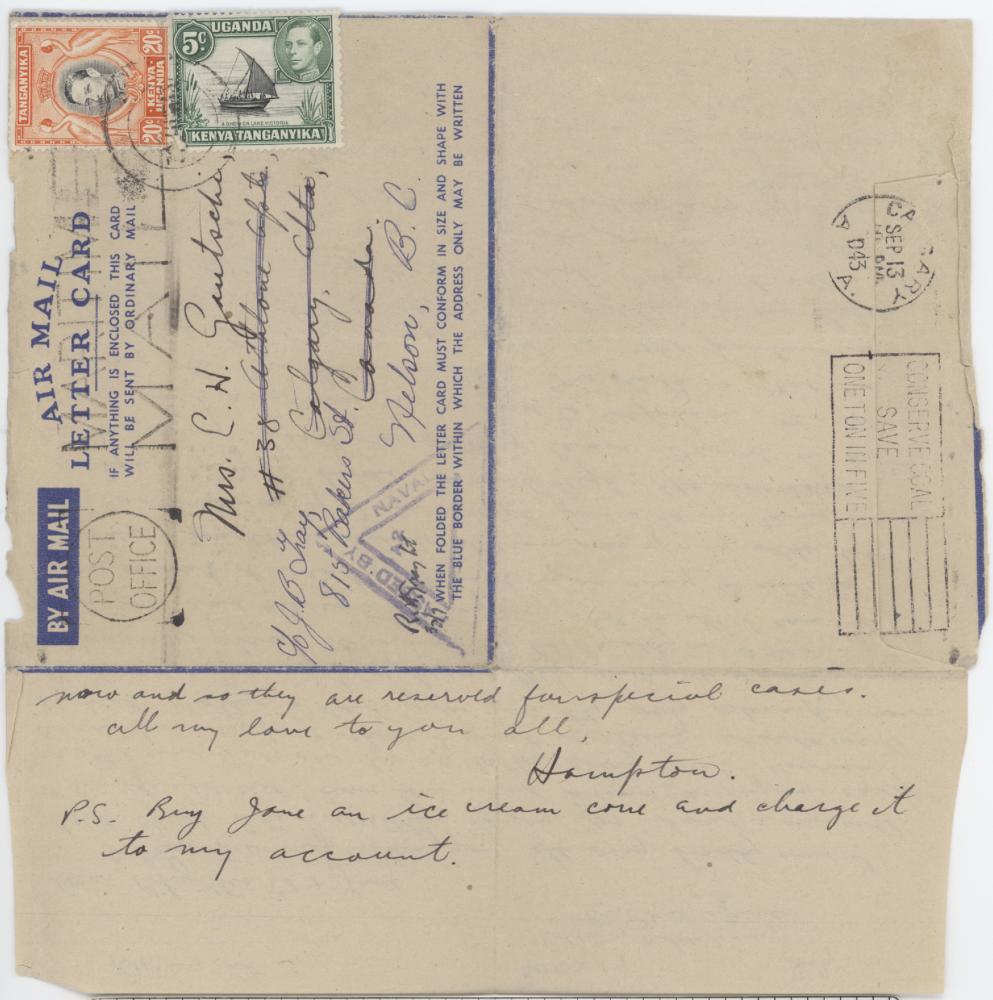 TANGANYIKA
20c KENYA UGANDA 20c
UGANDA
5c
A DHOW ON LAKE VICTORIA
KENYA TANGANYIKA
AIR MAIL
LETTER CARD
IF ANYTHING IS ENCLOSED THIS CARD
WILL BE SENT BY ORDINARY MAIL
MARITIME
MAIL
BY AIR MAIL
POST
OFFICE
Mrs. C. H. Gautschi,
# 38 Athlone Apts,
Calgary, Alta,
Canada
c/o J. B. Gray
815 Bakers St.
Nelson, B.C.
NAVAL
WHEN FOLDED THE LETTER CARD MUST CONFORM IN SIZE AND SHAPE WITH
THE BLUE BORDER WITHIN WHICH THE ADDRESS ONLY MAY BE WRITTEN
SEP 13
1943
CONSERVE COAL
SAVE
ONE TON IN FIVE
now and so they are reserved for special cases.
all my love to you all,
Hampton.
P.S. Buy Jane an ice cream cone and charge it
to my account.